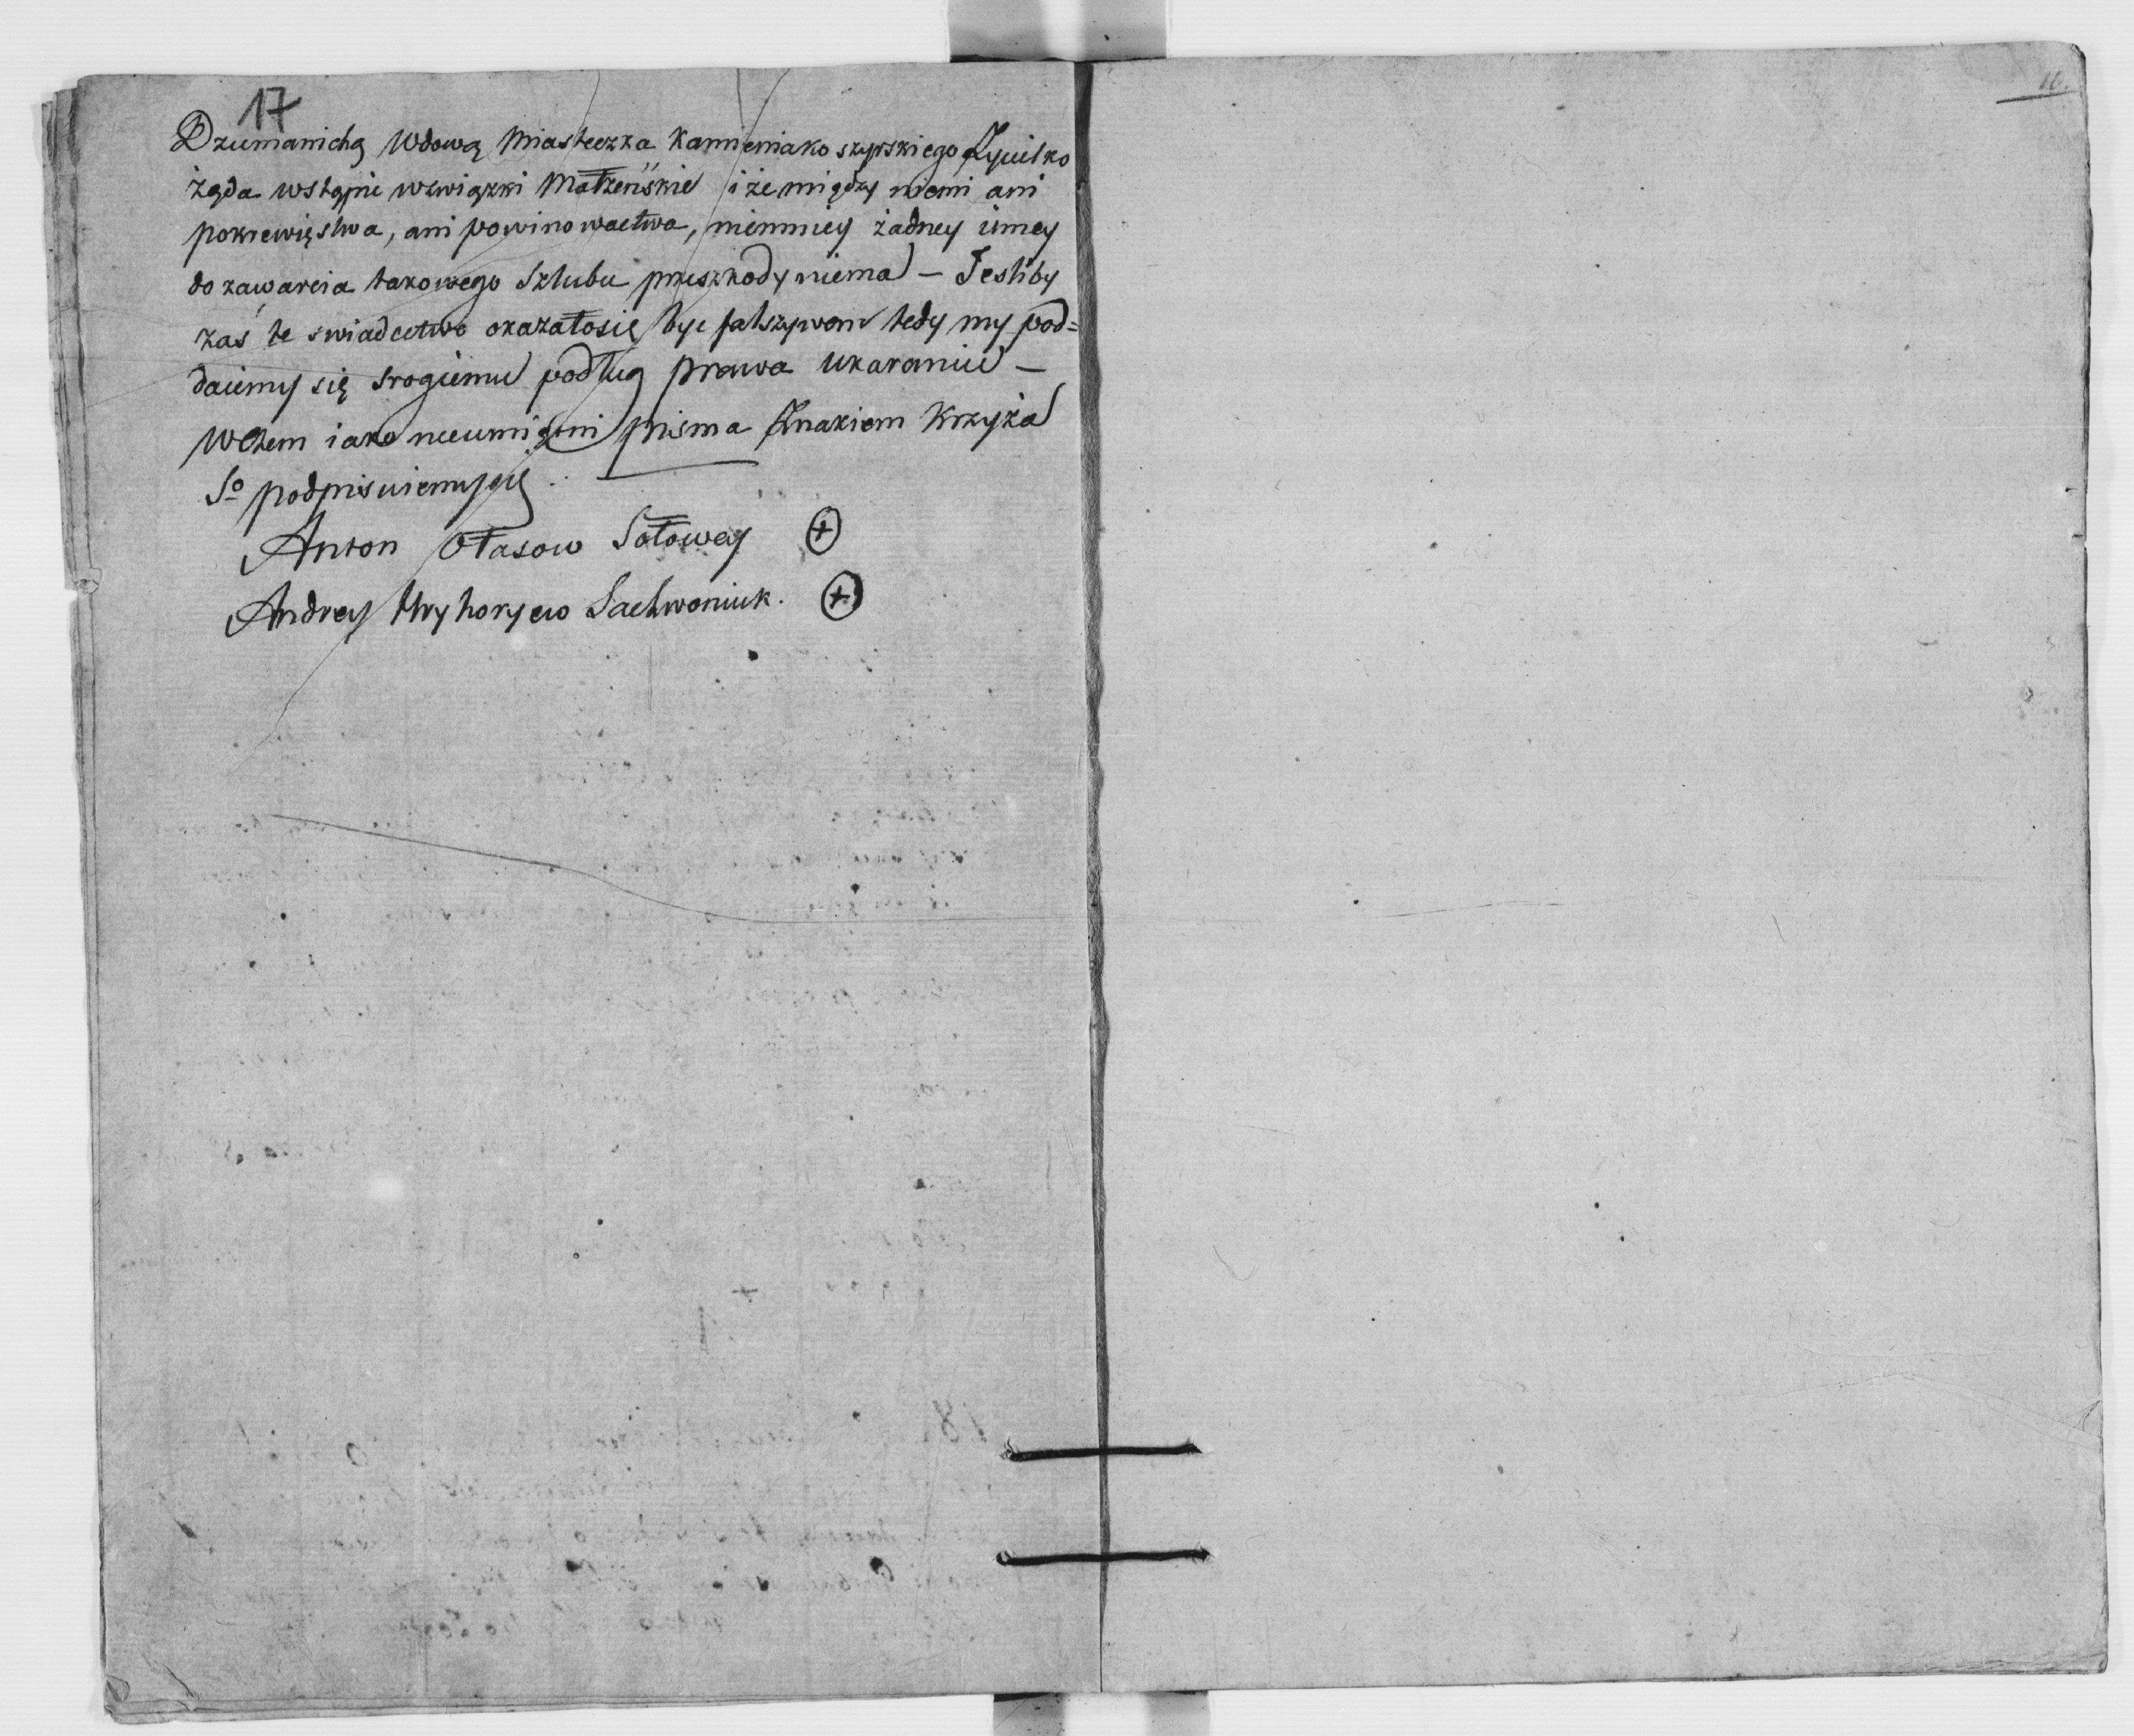 17
Dzumanichą Wdową Miasteczka Kamieniakoszyrskiego
żąda wstąpić wzwiązki Małżeńskie i że między niemi ani
pokrewięstwa, ani powinowactwa, niemniey żadney inney
do zawarcia takowego Szlubu przeszkody niema – Jesliby
zaś te swiadectwo okazałosię być fałszywem tedy my pod=
daiemy się srogiemu podług prawa ukaraniu –
Wczem iako nieumieiętni pisma Znakiem Krzyża
So podpisuiemysię
Anton Ołasow Sołowey +
Andrey Hryhoryew Sachwoniuk. +
16.